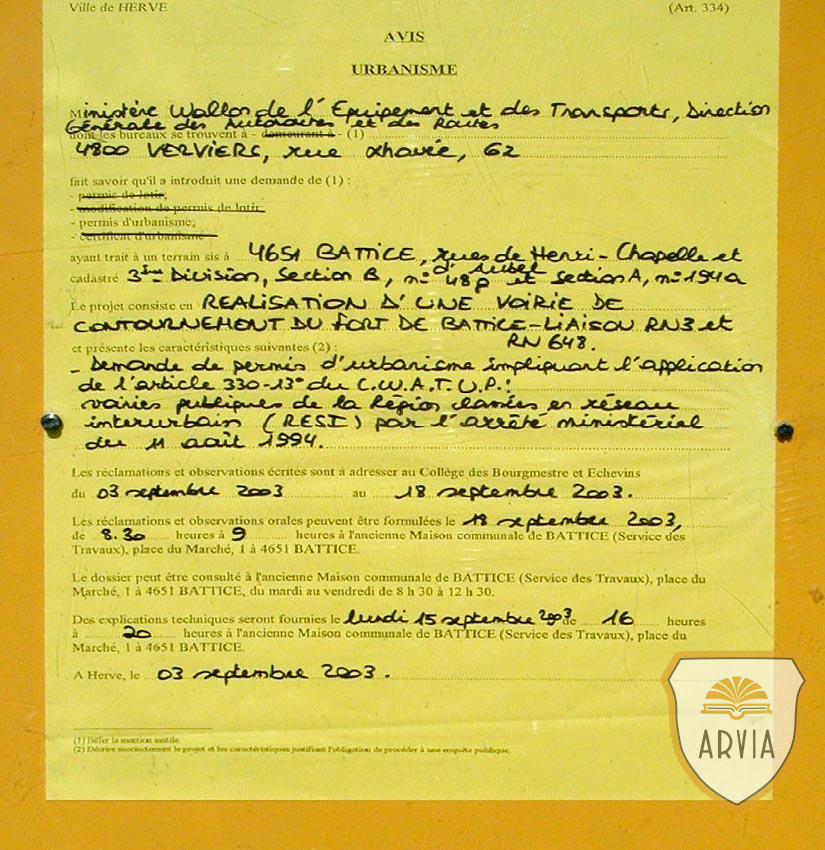 Ville de HERVE (Art. 334)
AVIS
URBANISME
Ministère Wallon de l'Equipement et des Transports, Direction
Générale des Autoroutes et des Routes
dont les bureaux se trouvent à - demeurant à - (1)
4800 VERVIERS, rue Xhavée, 62
fait savoir qu'il a introduit une demande de (1) :
- permis de lotir;
- modification de permis de lotir;
- permis d'urbanisme;
- certificat d'urbanisme
ayant trait à un terrain sis à 4651 BATTICE, rues de Henri-Chapelle et
d'Aubel
cadastré 3ème Division, Section B, n° 48p et section A, n° 194a
Le projet consiste en REALISATION D'UNE VOIRIE DE
CONTOURNEMENT DU FORT DE BATTICE-LIAISON RN3 et
RN 648.
et présente les caractéristiques suivantes (2) :
- Demande de permis d'urbanisme impliquant l'application
de l'article 330-13° du C.W.A.T.U.P.:
voiries publiques de la Région classées en réseau
interurbain (RESI) par l'arrêté ministériel
du 11 août 1994.
Les réclamations et observations écrites sont à adresser au Collège des Bourgmestre et Echevins
du 03 septembre 2003 au 18 septembre 2003.
Les réclamations et observations orales peuvent être formulées le 18 septembre 2003,
de 8.30 heures à 9 heures à l'ancienne Maison communale de BATTICE (Service des
Travaux), place du Marché, 1 à 4651 BATTICE.
Le dossier peut être consulté à l'ancienne Maison communale de BATTICE (Service des Travaux), place du
Marché, 1 à 4651 BATTICE, du mardi au vendredi de 8 h 30 à 12 h 30.
Des explications techniques seront fournies le lundi 15 septembre 2003 de 16 heures
à 20 heures à l'ancienne Maison communale de BATTICE (Service des Travaux), place du
Marché, 1 à 4651 BATTICE.
A Herve, le 03 septembre 2003.
(1) Biffer la mention inutile.
(2) Décrire succinctement le projet et les caractéristiques justifiant l'obligation de procéder à une enquête publique.
ARVIA